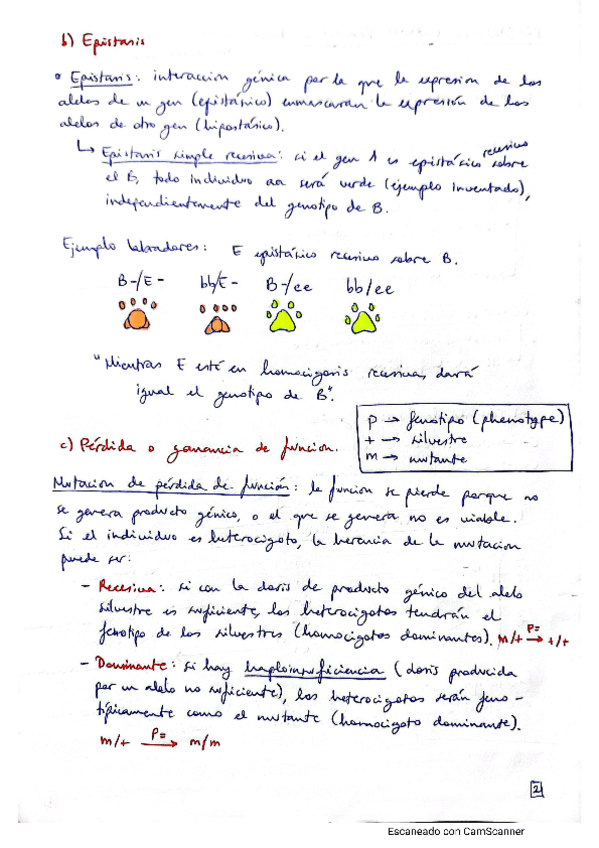 b) Epistasis
• Epistasis: interacción génica por la que la expresión de los
alelos de un gen (epistásico) enmascaran la expresión de los
alelos de otro gen (hipostásico).
↳ Epistasis simple recesiva: si el gen A es epistásico recesivo sobre
el B, todo individuo aa será verde (ejemplo inventado),
independientemente del genotipo de B.
Ejemplo labradores: E epistásico recesivo sobre B.
B-/E- bb/E- B-/ee bb/ee
"Mientras E esté en homocigosis recesiva, dará
igual el genotipo de B".
P → fenotipo (phenotype)
+ → silvestre
m → mutante
c) Pérdida o ganancia de función.
Mutación de pérdida de función: la función se pierde porque no
se genera producto génico, o el que se genera no es viable.
Si el individuo es heterocigoto, la herencia de la mutación
puede ser:
- Recesiva: si con la dosis de producto génico del alelo
silvestre es suficiente, los heterocigotos tendrán el
fenotipo de los silvestres (homocigotos dominantes). m/+ P=→ +/+
- Dominante: si hay haploinsuficiencia (dosis producida
por un alelo no suficiente), los heterocigotos serán feno-
típicamente como el mutante (homocigoto dominante).
m/+ P=→ m/m
2
Escaneado con CamScanner